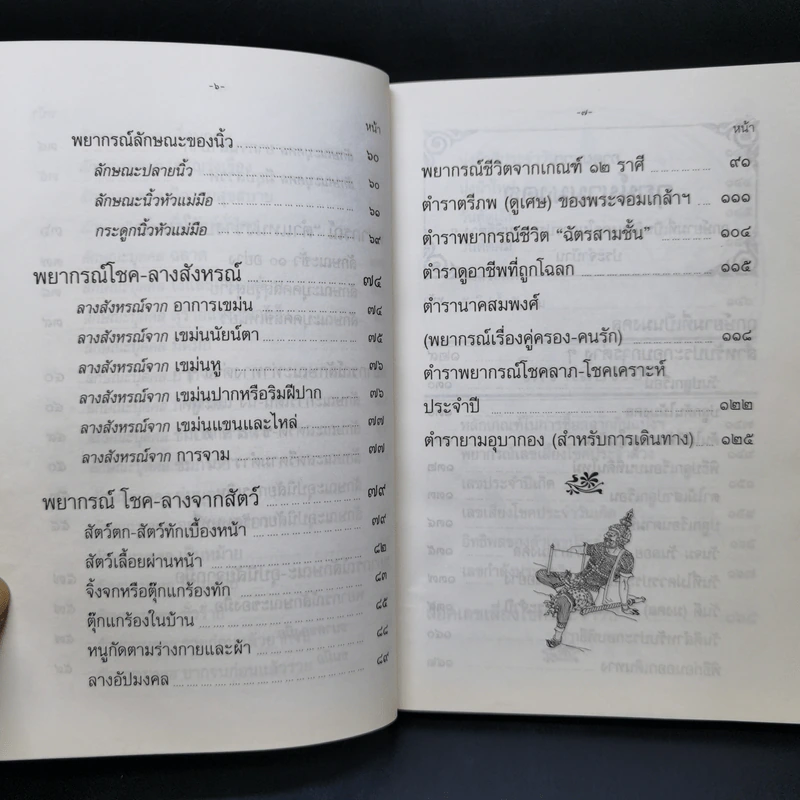 -๖-
หน้า
พยากรณ์ลักษณะของนิ้ว ๖๐
ลักษณะปลายนิ้ว ๖๐
ลักษณะนิ้วหัวแม่มือ ๖๑
กระดูกนิ้วหัวแม่มือ ๖๙
พยากรณ์โชค-ลางสังหรณ์ ๗๔
ลางสังหรณ์จาก อาการเขม่น ๗๔
ลางสังหรณ์จาก เขม่นนัยน์ตา ๗๕
ลางสังหรณ์จาก เขม่นหู ๗๖
ลางสังหรณ์จาก เขม่นปากหรือริมฝีปาก ๗๖
ลางสังหรณ์จาก เขม่นแขนและไหล่ ๗๗
ลางสังหรณ์จาก การจาม ๗๗
พยากรณ์ โชค-ลางจากสัตว์ ๗๙
สัตว์ตก-สัตว์ทักเบื้องหน้า ๗๙
สัตว์เลื้อยผ่านหน้า ๘๒
จิ้งจกหรือตุ๊กแกร้องทัก ๘๓
ตุ๊กแกร้องในบ้าน ๘๕
หนูกัดตามร่างกายและผ้า ๘๘
ลางอัปมงคล ๘๙
-๗-
หน้า
พยากรณ์ชีวิตจากเกณฑ์ ๑๒ ราศี ๙๑
ตำราตรีภพ (ดูเศษ) ของพระจอมเกล้าฯ ๑๑๑
ตำราพยากรณ์ชีวิต “ฉัตรสามชั้น” ๑๐๔
ตำราดูอาชีพที่ถูกโฉลก ๑๑๕
ตำรานาคสมพงศ์
(พยากรณ์เรื่องคู่ครอง-คนรัก) ๑๑๘
ตำราพยากรณ์โชคลาภ-โชคเคราะห์
ประจำปี ๑๒๒
ตำรายามอุบากอง (สำหรับการเดินทาง) ๑๒๕